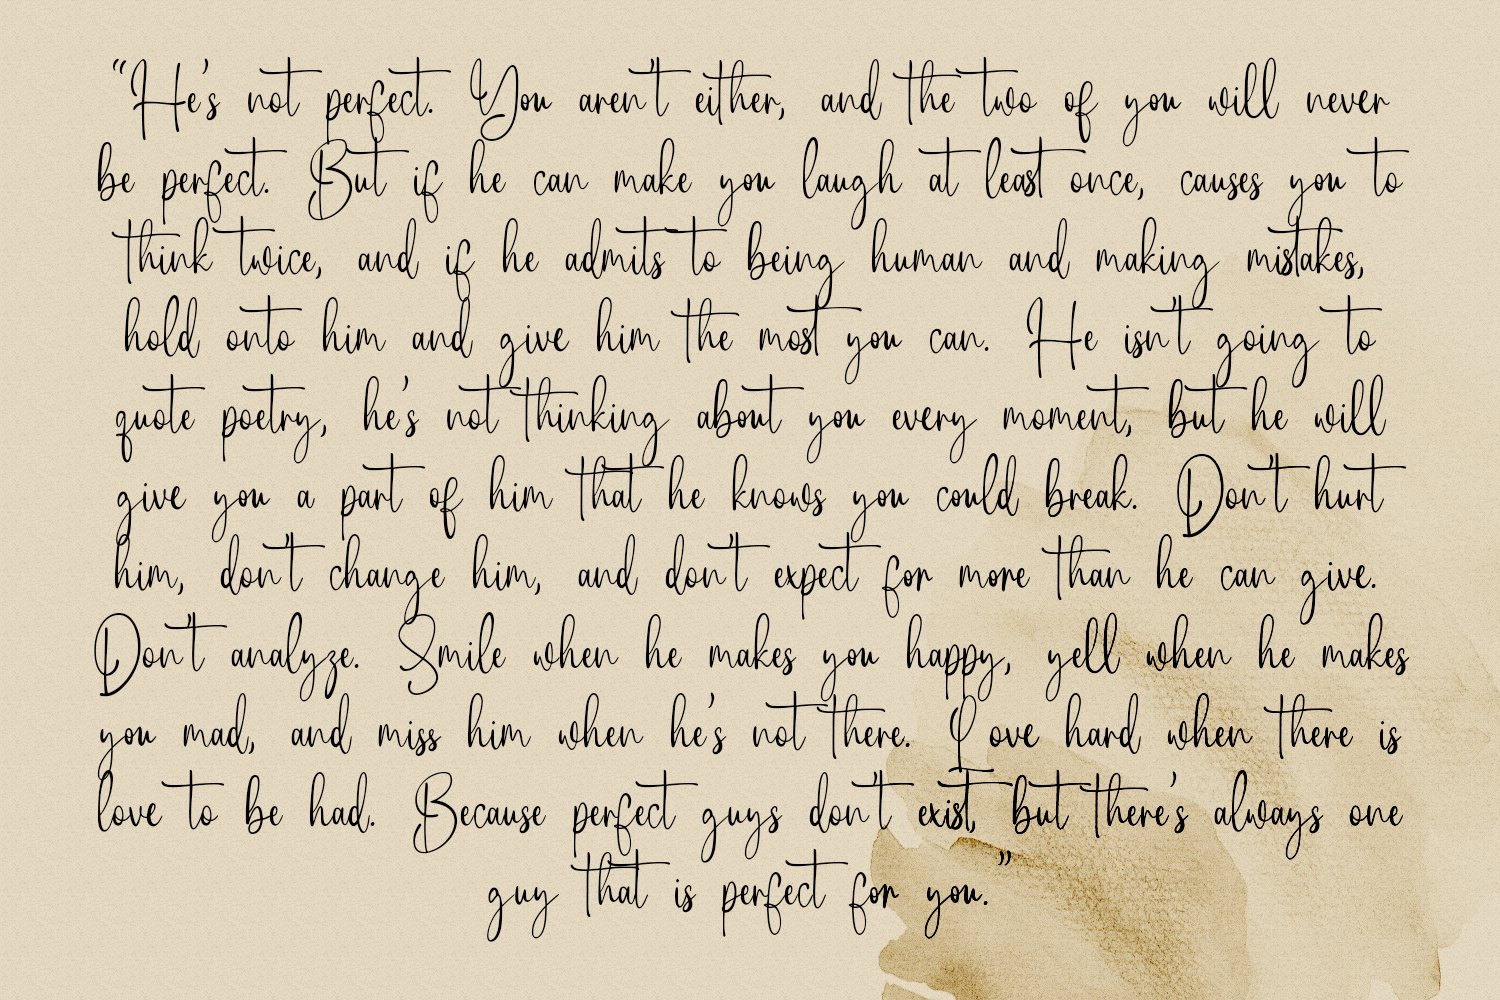 “He's not perfect. You aren't either, and the two of you will never
be perfect. But if he can make you laugh at least once, causes you to
think twice, and if he admits to being human and making mistakes,
hold onto him and give him the most you can. He isn't going to
quote poetry, he's not thinking about you every moment, but he will
give you a part of him that he knows you could break. Don't hurt
him, don't change him, and don't expect for more than he can give.
Don't analyze. Smile when he makes you happy, yell when he makes
you mad, and miss him when he's not there. Love hard when there is
love to be had. Because perfect guys don't exist, but there's always one
guy that is perfect for you.”